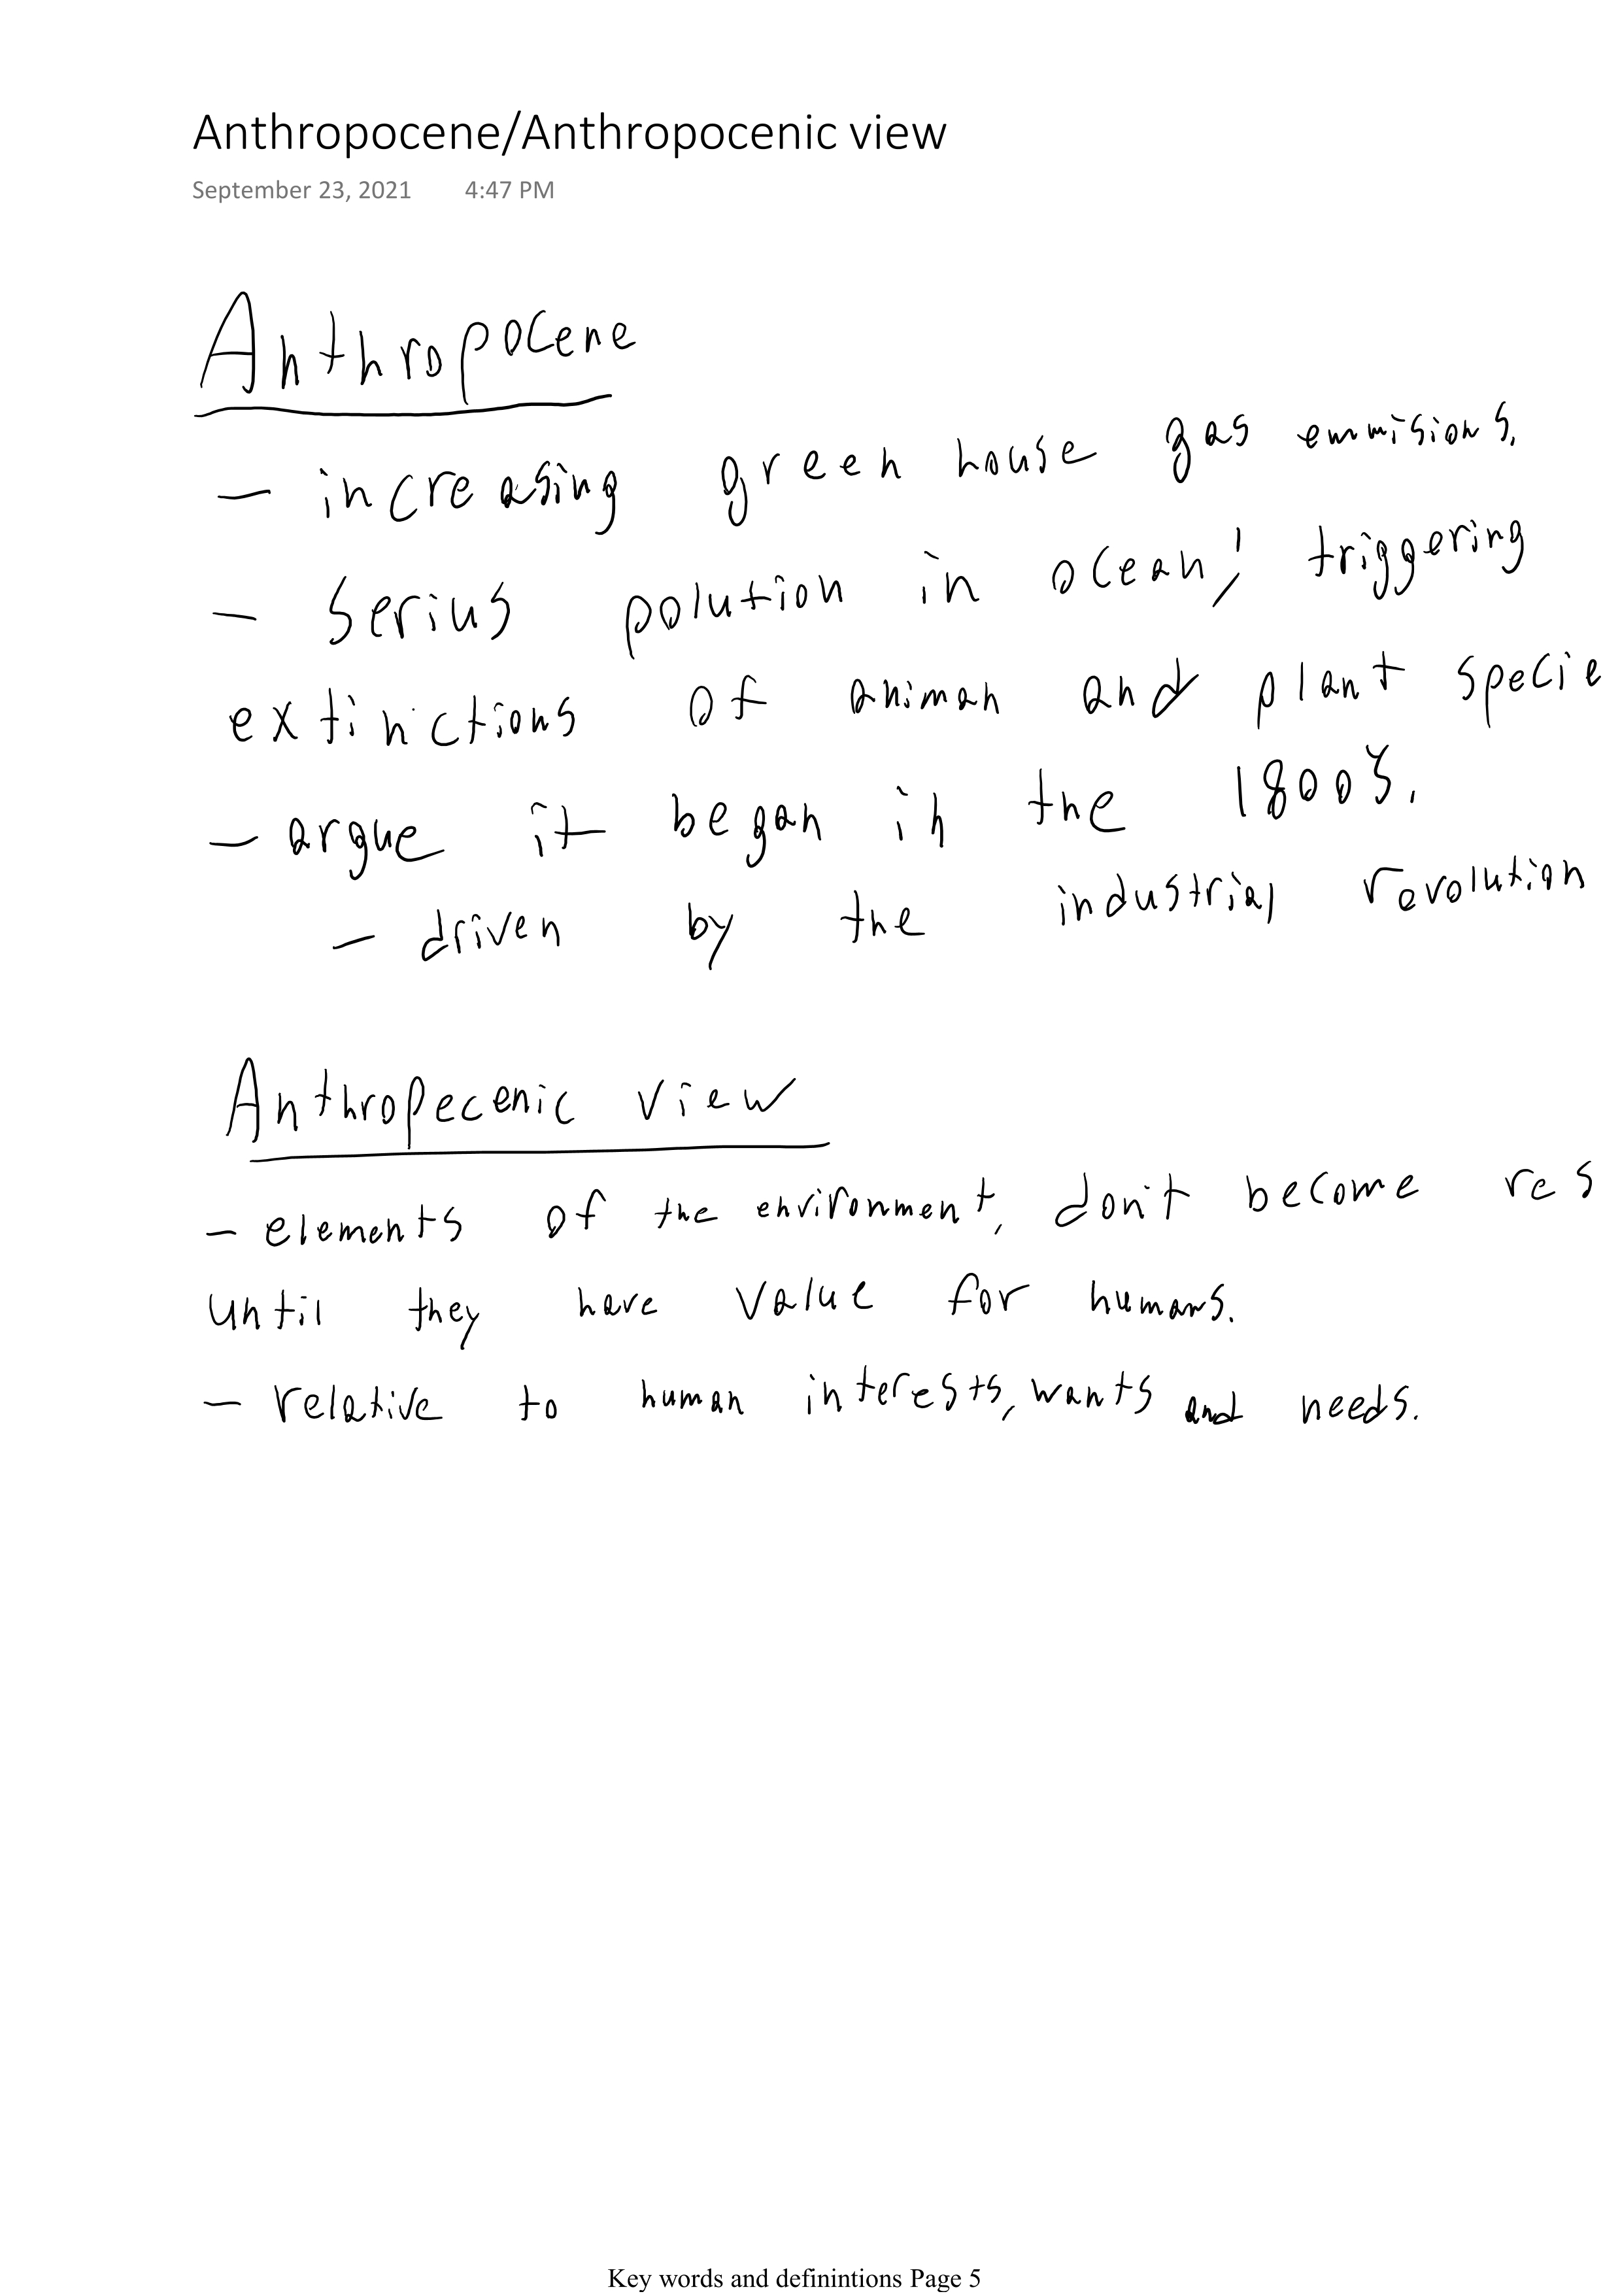 Anthropocene/Anthropocenic view
September 23, 2021 4:47 PM
Anthropocene
— increasing green house gas emmisions,
— Serius polution in ocean, triggering
extinctions of animan and plant specie
— argue it began in the 1800s.
— driven by the industrial revolution
Anthropecenic view
— elements of the environment, don't become res
until they have value for humans.
— relative to human interests, wants and needs.
Key words and definintions Page 5